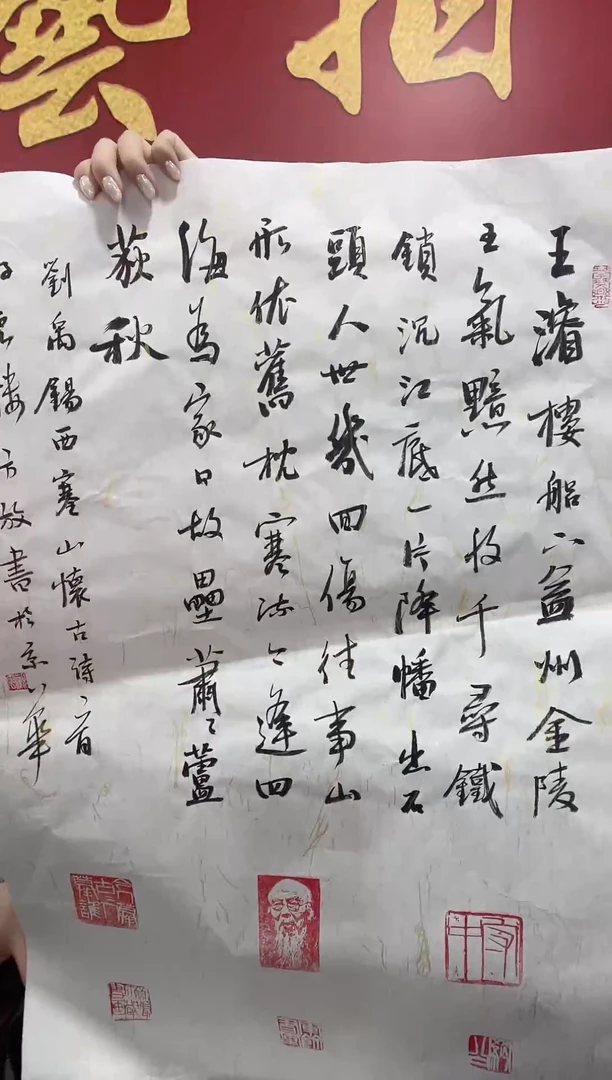 藝拍
王濬樓船下益州金陵
王氣黯然收千尋鐵
鎖沉江底一片降幡出石
頭人世幾回傷往事山
形依舊枕寒流今逢四
海為家日故壘蕭々蘆
荻秋
劉禹錫西塞山懷古詩一首
樓方放書於京華